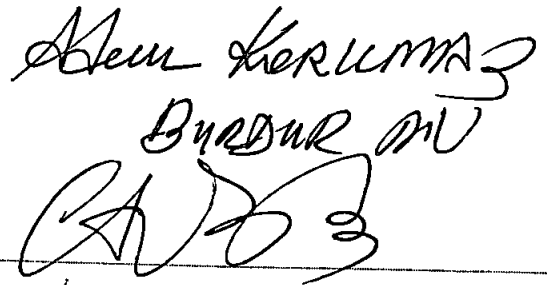 Adem KORKMAZ
BURDUR MV